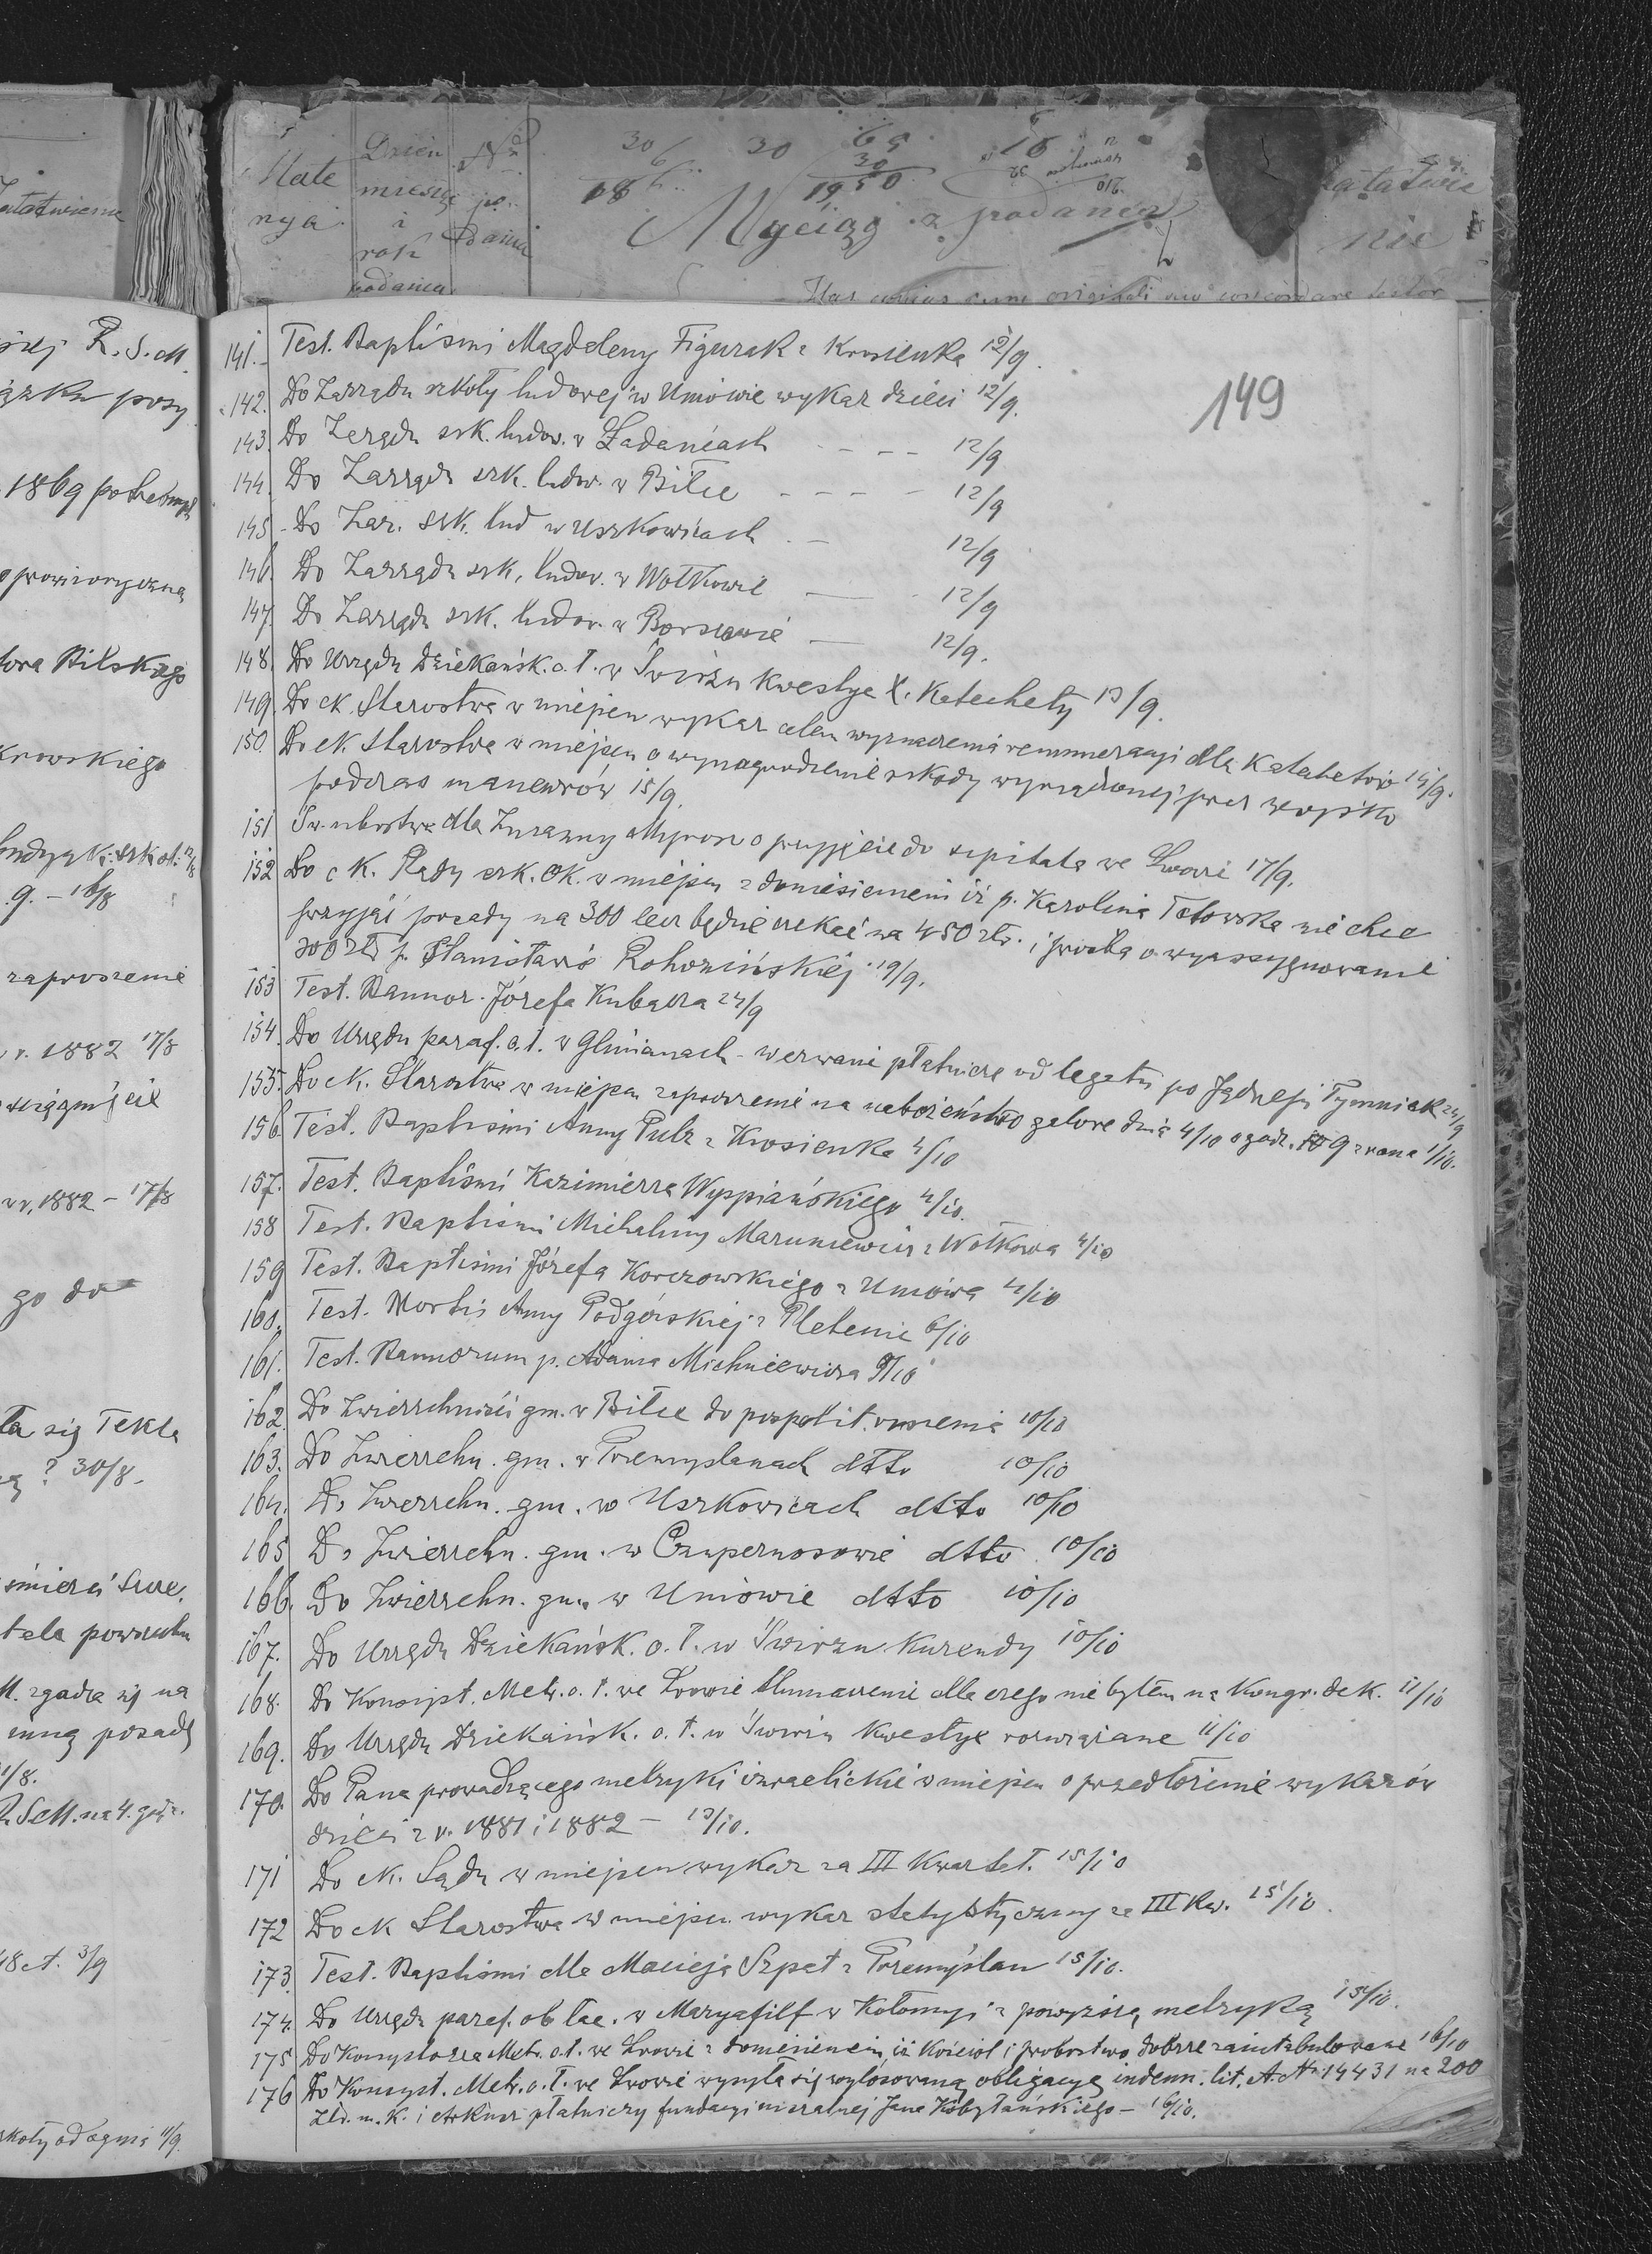 Mate
nya
Dzień
miesiąc
i
rok
podania
Nr
po
dania
30
30
69
30
1950
Wyciąg z podania
Załatwie
nie
149
141. Test. Baptismi Magdaleny Figurak z Krosienka 12/9.
142. Do Zarządu szkoły ludowej w Uniowie wykaz dzieci 12/9.
143. Do Zarządu szk. ludow. w Ładańcach - - - 12/9
144. Do Zarządu szk. ludow. w Biłce - - - - 12/9
145. Do Zar. szk. lud w Uszkowicach - 12/9
146. Do Zarządu szk. ludow. w Wołkowie — 12/9
147. Do Zarządu szk. ludow. w Borszowie — 12/9.
148. Do Urzędu Dziekańsk. o. ł. w Świrzu Kwestye X. Katechety 13/9.
149. Do ck. Starostwa w miejscu wykaz celem wyznaczenia remuneracyi dla Katechetów 14/9.
150. Do ck. Starostwa w miejscu o wynagrodzenie szkody wyrządzonej przez wojsko
podczas manewrów 15/9.
151 Św. ubóstwa dla Zuzanny Myrosz o przyjęcie do szpitala we Lwowie 17/9.
152 Do c k. Rady szk. ok. w miejscu z doniesieniem iż p. Karolina Tetowska nie chce
przyjąć posady na 300 lecz będzie czekać na 450 złr. i prośba o wyassygnowanie
300 złr p. Stanisławie Rohozińskiej 19/9.
153 Test. Bannor. Józefa Kubacza 24/9
154. Do Urzędu paraf. o. ł. w Glinianach - wezwanie płatnicze od legatu po Jędrzeju Tymniak 24/9
155. Do ck. Starostwa w miejscu zaproszenie na nabożeństwo galowe dnia 4/10 o godz. 9 z rana 1/10.
156. Test. Baptismi Anny Pulz z Krosienka 4/10
157. Test. Baptismi Kazimierza Wyspiańskiego 4/10.
158 Test. Baptismi Michaliny Maruniewicz z Wołkowa 4/10
159 Test. Baptismi Józefa Korczowskiego z Uniowa 4/10
160. Test. Mortis Anny Podgórskiej z Pletenic 6/10
161. Test. Bannorum p. Adama Michniewicza 9/10
162. Do Zwierzchności gm. w Biłce do pospolit. ruszenia 10/10
163. Do Zwierzchn. gm. w Przemyślanach dtto 10/10
164. Do Zwierzchn. gm. w Uszkowicach dtto 10/10
165 Do Zwierzchn. gm. w Czupernosowie dtto 10/10
166. Do Zwierzchn. gm. w Uniowie dtto 10/10
167. Do Urzędu Dziekańsk. o. ł. w Świrzu Kurendy 10/10
168. Do Konsyst. Metr. o. ł. we Lwowie tłumaczenie dla czego nie byłem na Kongr. dek. 11/10
169. Do Urzędu Dziekańsk. o. ł. w Świrzu Kwestye rozwiązane 11/10
170. Do Pana prowadzącego metryki izraelickie w miejscu o przedłożenie wykazów
dzieci z r. 1881 i 1882 — 13/10.
171 Do ck. Sądu w miejscu wykaz za III Kwartał. 15/10
172 Do ck Starostwa w miejscu wykaz statystyczny za III Kw. 15/10.
173. Test. Baptismi dla Macieja Szpat z Przemyślan 15/10.
174. Do Urzędu paraf. ob łac. w Maryahilf w Kołomyi z powyższą metryką 15/10.
175 Do Konsystorza Metr. o. ł. we Lwowie z doniesieniem iż Kościół i probostwo dobrze zaintabulowane 16/10
176 Do Konsyst. Metr. o. ł. we Lwowie wysyła się wylosowaną obligacyę indemn. lit. A. No 14431 na 200
Złr. m. k. i Arkusz płatniczy fundacyi mszalnej Jana Kobyłańskiego — 16/10.
R. S. M.
posy
1869
prowizoryczną
Bilskiego
krowskiego
g. - 16/8
zaproszenie
r. 1882 17/8
r. 1882 - 17/8
go do
ła się Tekla
? 30/8 -
śmierci
M. zgadza się na
inną posadę
1/8.
3/9
11/9